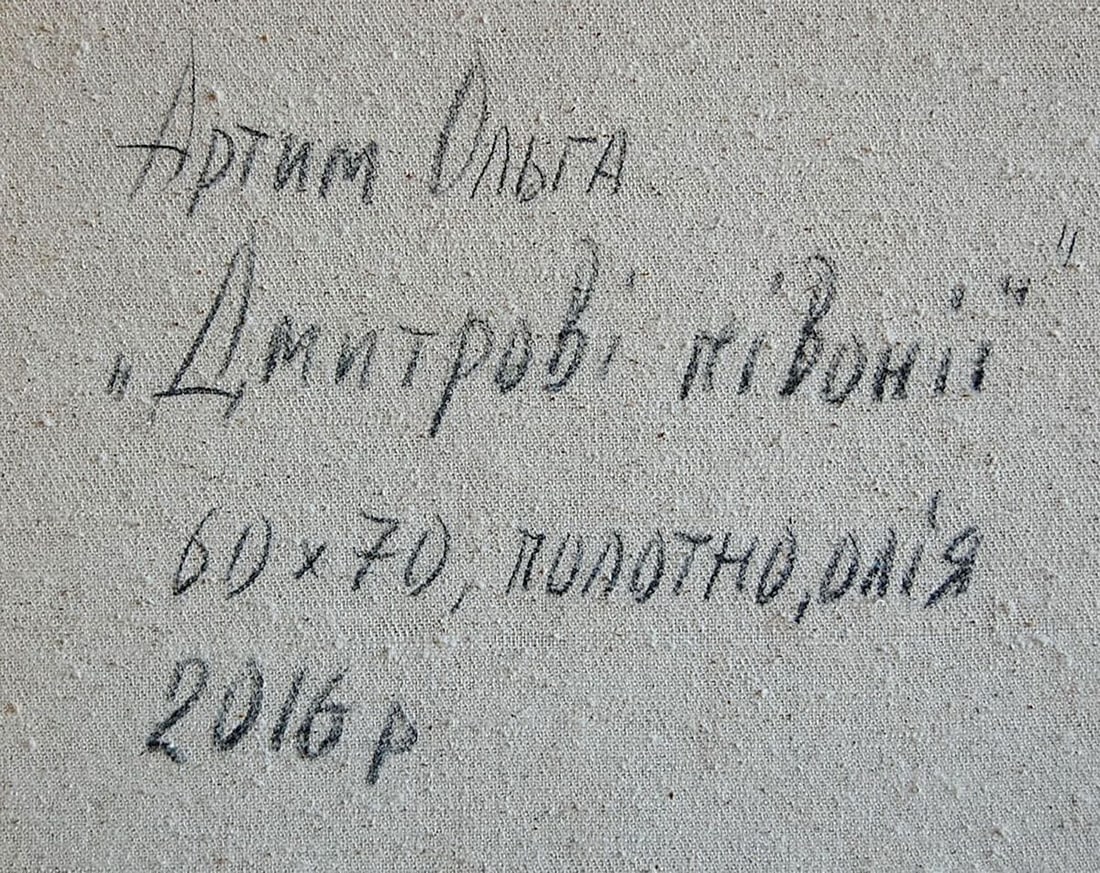 Артим Ольга
„Дмитрові півонії"
60×70, полотно, олія
2016 р